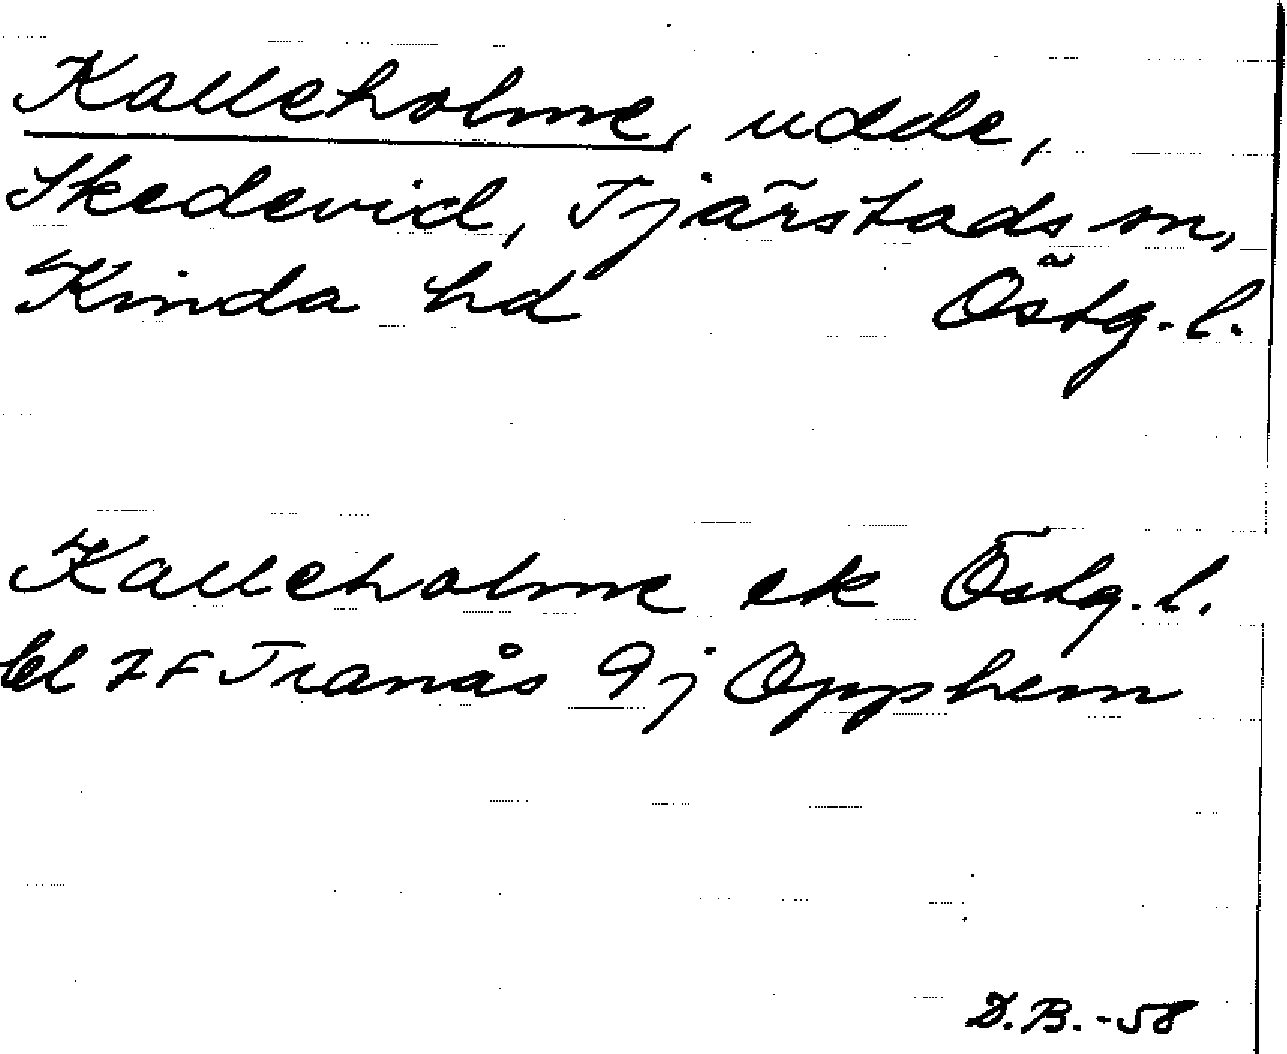 Kalleholme, udde,
Skedevid, Tjärstads sn,
Kinda hd Östg. l.
Kalleholme ek Östg. l.
bl 7F Tranås 9j Opphem
D.B. -58